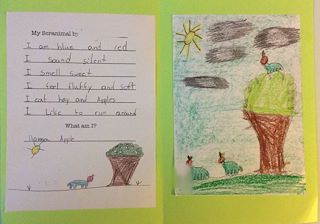 My Scranimal by
I am blue and red
I sound silent
I smell sweet
I feel fluffy and soft
I eat hay and Apples
I Like to run around
What am I?
Apple